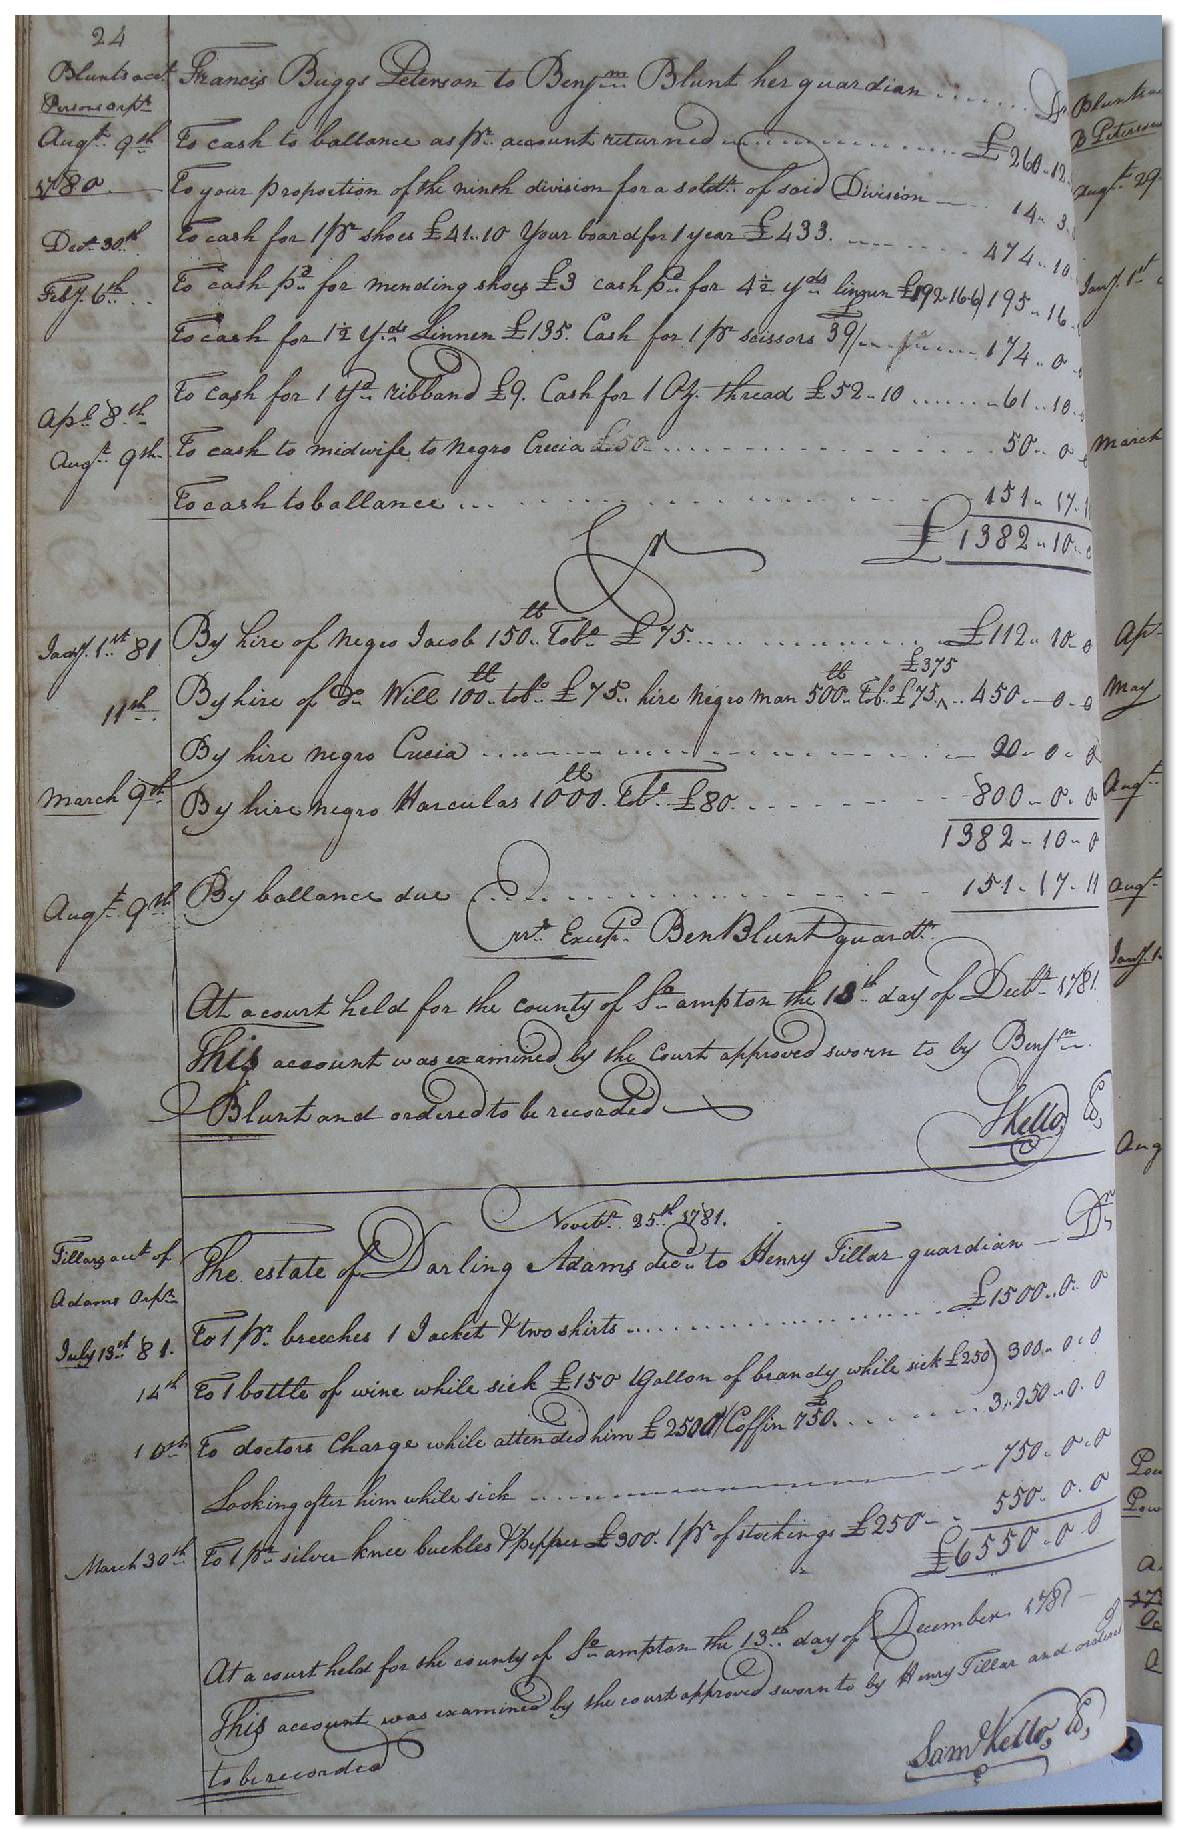 24
Blunts acct. Francis Buggs Peterson to Benjm. Blunt her guardian ...... Dr
Persons orpn.
Augt. 9th To cash to ballance as pr. account returned ........ £260..12..
1780 To your proportion of the ninth division for a soldr. of said Division — 14..3..
Dec. 30th To cash for 1 pr shoes £41..10 Your board for 1 year £433. ...... 474..10
Feby. 6th.. To cash pd. for mending shoes £3 cash pd. for 4½ yds linnen £192..16..6) 195..16..
To cash for 1½ Yds. Linnen £135. Cash for 1 pr scissors 39/ ...... 174..0..
To cash for 1 yd. ribband £9. Cash for 1 Oz. thread £52..10 ...... 61..10..
Apl. 8th
Augt. 9th. To cash to midwife to negro Crecia £50 ...... 50..0..
To cash to ballance ... 151..17..11
£1382..10..0
Cr
Jany. 1st 81 By hire of negro Jacob 150.. lb Tobo. £75 ...... £112..10..0
£375
11th. By hire of Do. Will 100.. lb tobo. £75.. hire negro man 500.. lb Tob. £75.^.. 450..0..0
By hire negro Crecia ...... 20..0..0
March 9th. By hire negro Harculas 1000. lb Tobo. £80 ...... 800..0..0
1382..10..0
Augt. 9th By ballance due ...... 151..17..11
Errs. Excepd. Ben Blunt guardn.
At a court held for the county of So.ampton the 13th day of Decbr. 1781.
This account was examined by the Court approved sworn to by Benjm.
Blunt and ordered to be recorded
S Kello, Cl,
Novebr. 25th 1781.
Tillars acct of The estate of Darling Adams decd. to Henry Tillar guardian — Dr
Adams Orpn.
July 13th 81. To 1 pr. breeches 1 Jacket & two shirts ...... £1500..0..0
14th To 1 bottle of wine while sick £150 1 Gallon of brandy while sick £250) 300..0..0
10th To doctors Charge while attended him £2500/ Coffin £750. ...... 3,,250..0..0
Looking after him while sick ...... 750..0..0
March 30th To 1 pr. silver knee buckles & pepper £300. 1 pr. of stockings £250 — 550..0..0
£6550..0..0
At a court held for the county of So.ampton the 13th. day of December 1781 —
This account was examined by the court approved sworn to by Henry Tillar and ordered
to be recorded
Saml Kello, Cl,
Blunts
B Peterson
Augt 29
Jany. 1st
March
Ap
May
Augt
Augt
Jany. 1
Aug